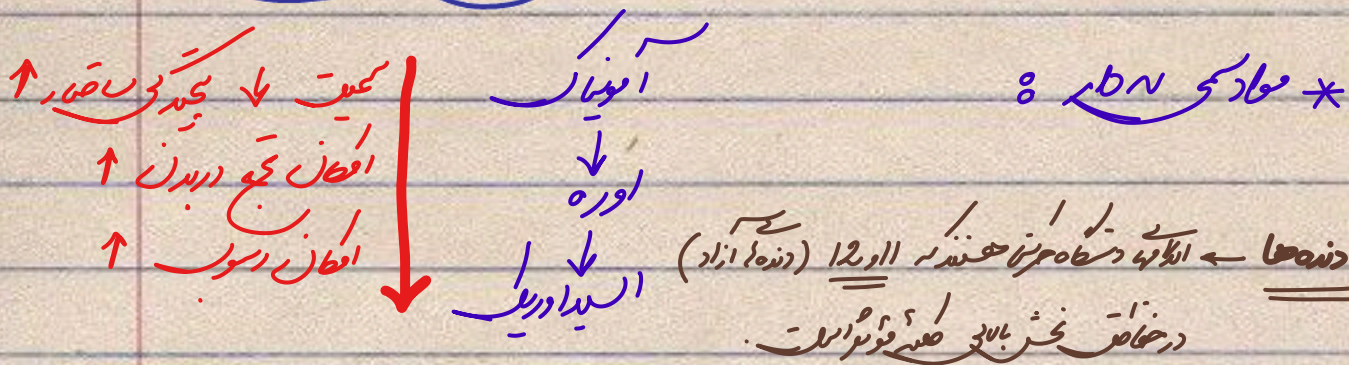 * مواد سمی N دار :
آمونیاک
↓
اوره
↓
اسیداوریک
سمیت ↓ پیچیدگی ساختار ↑
امکان تجمع دربدن ↑
امکان رسوب ↑
دنده‌ها ← اندامهای دستگاه حرکتی هستندکه 11 و 12 (دنده‌های آزاد)
درحفاظت بخش بالایی کلیه موثراست.